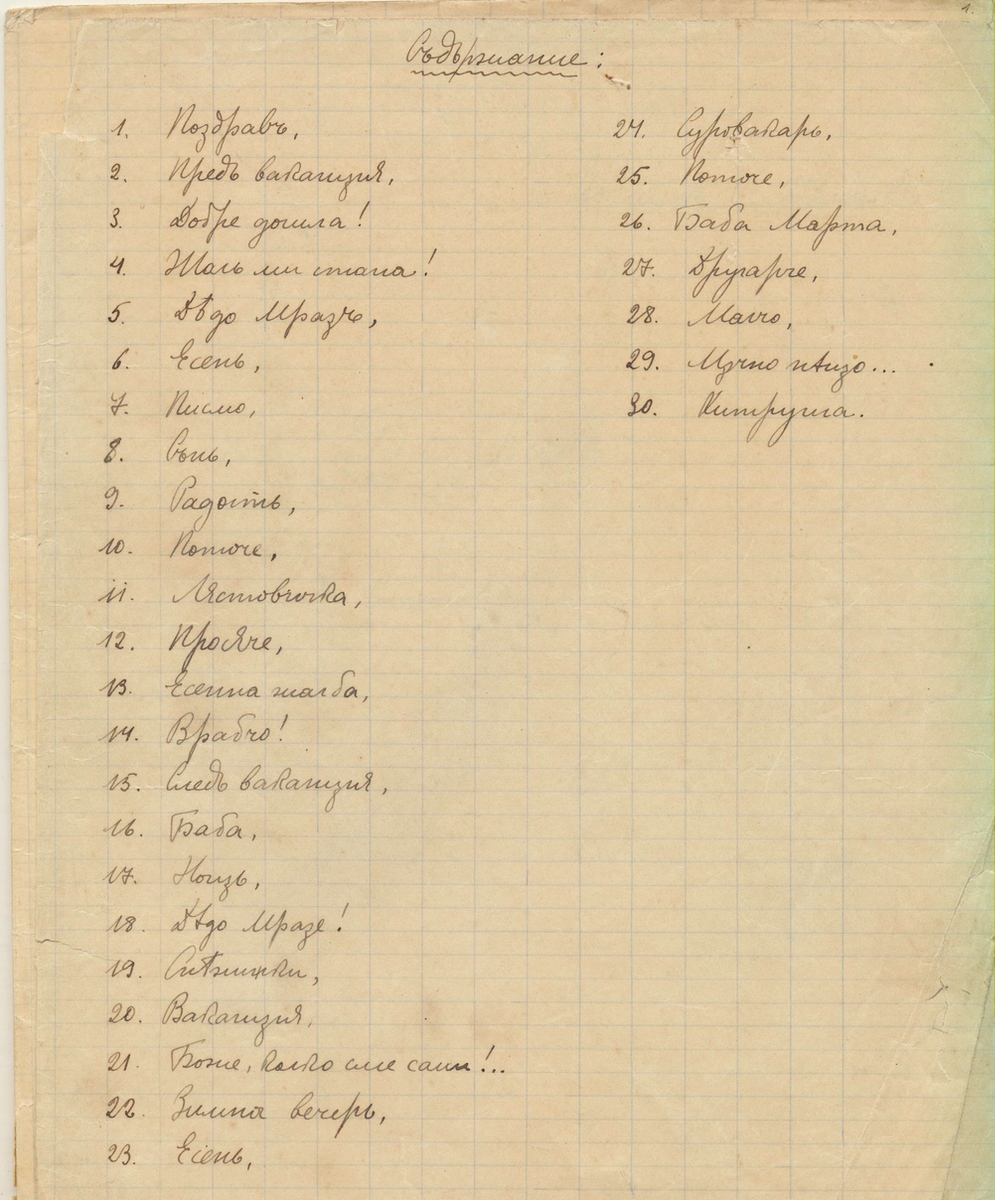 1.
Съдържание:
1. Поздравъ,
2. Предъ ваканция,
3. Добре дошла!
4. Жаль ми стана!
5. Дѣдо Мразъ,
6. Есень,
7. Писмо,
8. Сънь,
9. Радость,
10. Поточе,
11. Лястовичка,
12. Просяче,
13. Есенна жалба,
14. Врабчо!
15. Следъ ваканция,
16. Баба,
17. Нощь,
18. Дѣдо Мразе!
19. Снѣжинки,
20. Ваканция,
21. Боже, колко сме сами!..
22. Зимна вечерь,
23. Есень,
24. Суровакарь,
25. Поточе,
26. Баба Марта,
27. Другарче,
28. Мацо,
29. Мъчно нѣщо...
30. Хитруша.